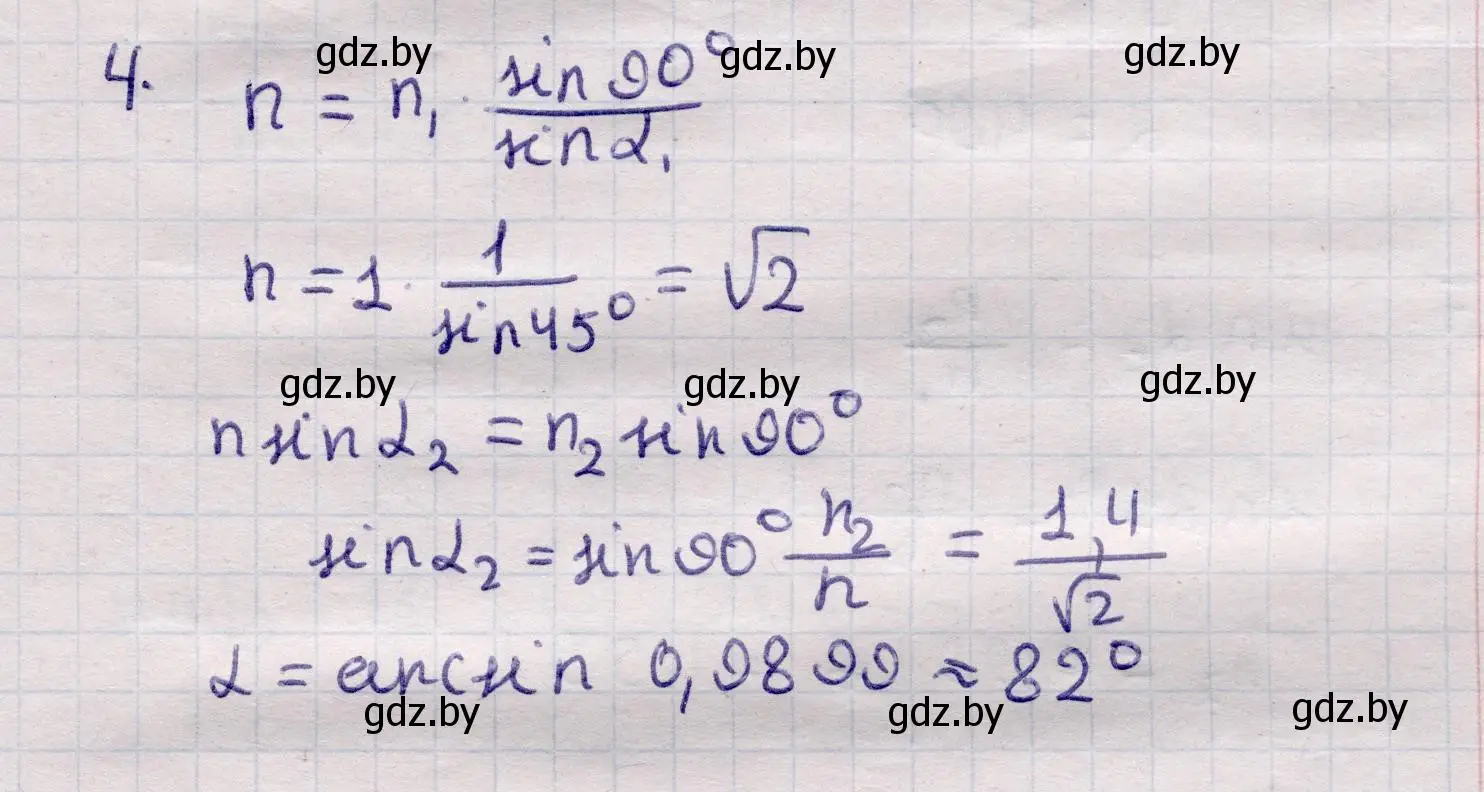 gdz.by gdz.by gdz.by
4. n = n₁ · sin 90° / sin α₁
n = 1 · 1 / sin 45° = √2
gdz.by gdz.by gdz.by
n sin α₂ = n₂ sin 90°
sin α₂ = sin 90° n₂ / n = 1,4 / √2
α = arcsin 0,9899 ≈ 82°
gdz.by gdz.by gdz.by